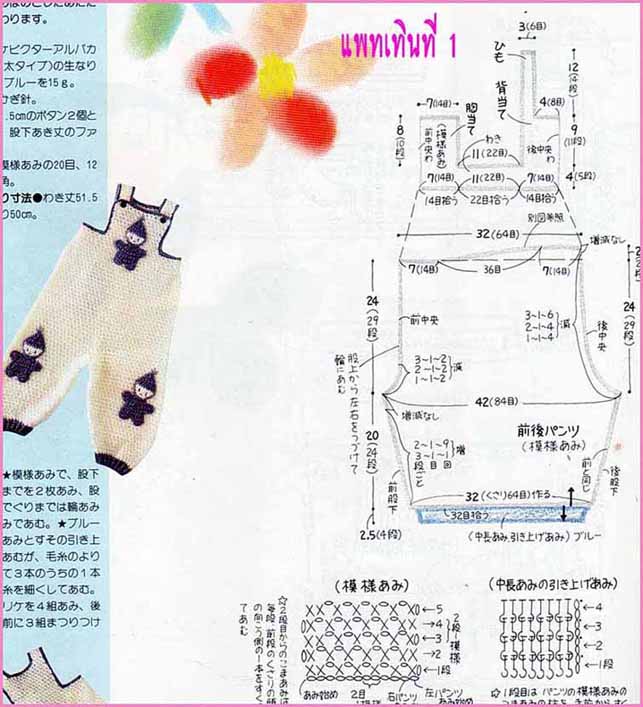 わります。
ピクターアルパカ
太タイプ)の生なり
ブルーを15g。
ぎ針。
.5cmのボタン2個と
股下あき丈のファ
模様あみの20目、12
角。
り寸法●わき丈51.5
り50cm。
แพทเทินที่ 1
3(6目)
ひも
12(14段)
背当て
7(14目)
胴当て
4(8目)
8(10段)
前中央わ
(模様あみ)
わき
11(22目)
後中央わ
9(11段)
4(5段)
7(14目)
11(22目)
7(14目)
14目拾う
22目拾う
14目拾う
別図参照
32(64目)
増減なし
7(14目)
36目
7(14目)
24(29段)
前中央
3-1-6
2-1-4
1-1-4
減
後中央
24(29段)
股上から左右をつづけて輪にあむ
3-1-2
2-1-2
1-1-2
減
42(84目)
増減なし
前後パンツ
(模様あみ)
20(24段)
2-1-9
3-1-1
段目回
ごと
増
前股下
前と同じ
後股下
32(くさり64目)作る
32目拾う
2.5(4段)
(中長あみ引き上げあみ)ブルー
★模様あみで、股下
までを2枚あみ、股
でぐりまでは輪あみ
みであむ。★ブルー
あみとすその引き上
あむが、毛糸のより
て3本のうちの1本
糸を細くしてあむ。
リケを4組あみ、後
前に3組まつりつけ
(模様あみ)
☆2段目からのこまあみは
毎段 前段のくさりの
の向こう側の1本をすく
てあむ
5
4
3
2
1段
2段1模様
あみ始め
2目
右パンツ
左パンツ
あみ始め
(中長あみの引き上げあみ)
4
3
2
1段
☆1段目は パンツの模様あみの